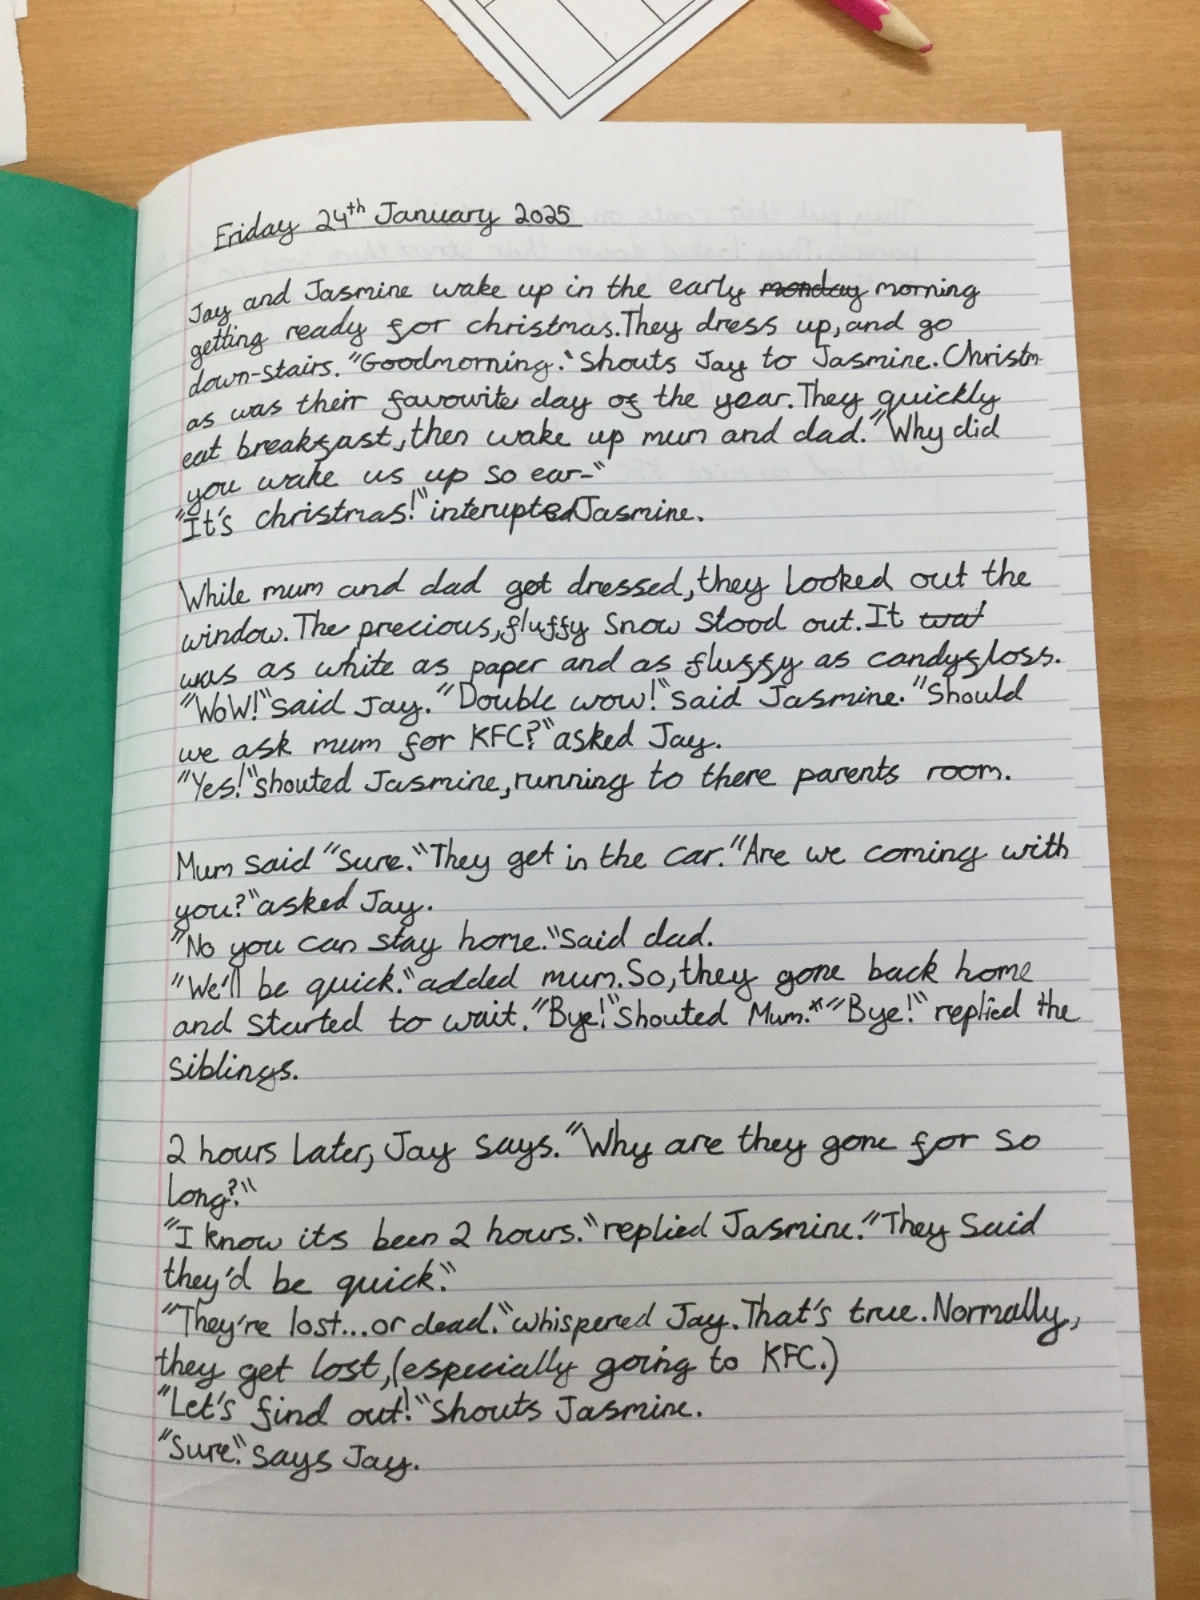 Friday 24th January 2025
Jay and Jasmine wake up in the early monday morning
getting ready for christmas.They dress up,and go
down-stairs."Goodmorning."Shouts Jay to Jasmine.Christm
as was their favourite day of the year.They quickly
eat breakfast,then wake up mum and dad."Why did
you wake us up so ear-"
"It's christmas!"interupted Jasmine.
While mum and dad got dressed,they looked out the
window.The precious,fluffy snow stood out.It wat
was as white as paper and as fluffy as candyfloss.
"WoW!"said Jay."Double wow!"said Jasmine."Should
we ask mum for KFC?"asked Jay.
"Yes!"shouted Jasmine,running to there parents room.
Mum said "Sure."They get in the car."Are we coming with
you?"asked Jay.
"No you can stay home."Said dad.
"We'll be quick."added mum.So,they gone back home
and started to wait."Bye!"Shouted Mum.*"Bye!" replied the
siblings.
2 hours later, Jay says."Why are they gone for so
long?"
"I know its been 2 hours."replied Jasmine."They said
they'd be quick."
"They're lost...or dead."whispered Jay.That's true.Normally,
they get lost,(especially going to KFC.)
"Let's find out!"shouts Jasmine.
"Sure."says Jay.